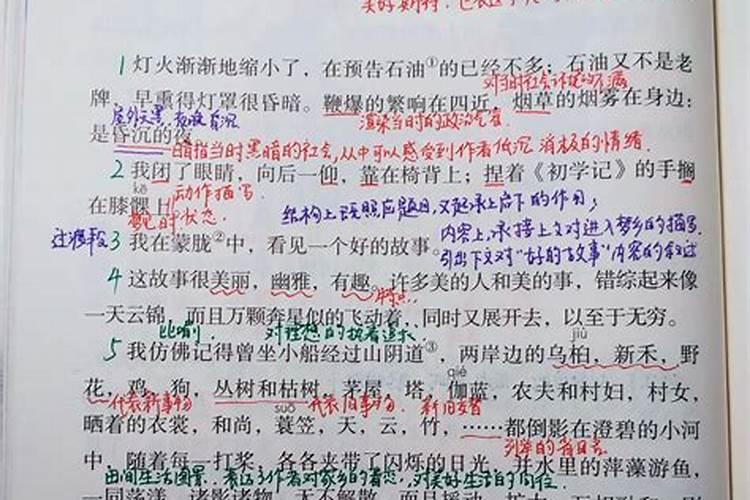 美好期待，也表达了
1 灯火渐渐地缩小了，在预告石油①的已经不多；石油又不是老
对当时社会
牌，早熏得灯罩很昏暗。鞭爆的繁响在四近，烟草的烟雾在身边：
屋外天黑，夜夜昏沉
渲染当时的政治气氛
是昏沉的夜。
暗指当时黑暗的社会，从中可以感受到作者低沉 消极的情绪.
2 我闭了眼睛，向后一仰，靠在椅背上；捏着《初学记》的手搁
kē
动作描写
在膝髁上。
梦幻时状态.
结构上既照应题目，又起承上启下的作用；
内容上，承接上文对进入梦乡的描写.
过渡段 3 我在蒙胧②中，看见一个好的故事。
引出下文对“好的故事”内容的叙述
4 这故事很美丽，幽雅，有趣。许多美的人和美的事，错综起来像
特点.
一天云锦，而且万颗奔星似的飞动着，同时又展开去，以至于无穷。
比喻 对理想的执着追求
jiù
5 我仿佛记得曾坐小船经过山阴道③，两岸边的乌桕，新禾，野
qié
花，鸡，狗，丛树和枯树，茅屋，塔，伽蓝，农夫和村妇，村女，
代表新事物 suō 代表旧事物. 新旧交替
晒着的衣裳，和尚，蓑笠，天，云，竹，……都倒影在澄碧的小河
列举的省略号
中，随着每一打桨，各各夹带了闪烁的日光，并水里的萍藻游鱼，
田间生活图景，表达了作者对家乡的眷恋，对美好生活的向往
一同荡漾。诸影诸物，无不解散，而且摇动，扩大，互相融和